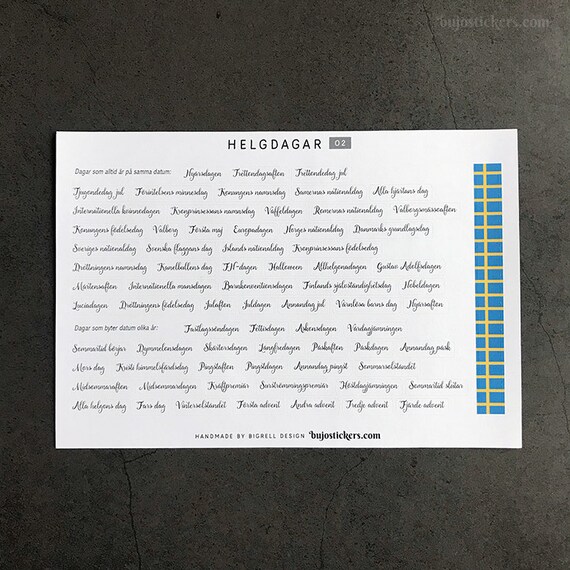 bujostickers.com
HELGDAGAR 02
Dagar som alltid är på samma datum: Nyårsdagen Trettondagsafton Trettondedag jul
Tjugondedag jul Förintelsens minnesdag Konungens namnsdag Samernas nationaldag Alla hjärtans dag
Internationella kvinnodagen Kronprinsessans namnsdag Våffeldagen Romernas nationaldag Valborgsmässoafton
Konungens födelsedag Valborg Första maj Europadagen Norges nationaldag Danmarks grundlagsdag
Sveriges nationaldag Svenska flaggans dag Islands nationaldag Kronprinsessans födelsedag
Drottningens namnsdag Kanelbullens dag FN-dagen Halloween Allhelgonadagen Gustav Adolfsdagen
Mårtensafton Internationella mansdagen Barnkonventionsdagen Finlands självständighetsdag Nobeldagen
Luciadagen Drottningens födelsedag Julafton Juldagen Annandag jul Värnlösa barns dag Nyårsafton
Dagar som byter datum olika år: Fastlagssöndagen Fettisdagen Askonsdagen Vårdagjämningen
Sommartid börjar Dymmelonsdagen Skärtorsdagen Långfredagen Påskafton Påskdagen Annandag påsk
Mors dag Kristi himmelsfärdsdag Pingstafton Pingstdagen Annandag pingst Sommarsolståndet
Midsommarafton Midsommardagen Kräftpremiär Surströmmingspremiär Höstdagjämningen Sommartid slutar
Alla helgons dag Fars dag Vintersolståndet Första advent Andra advent Tredje advent Fjärde advent
HANDMADE BY BIGRELL DESIGN bujostickers.com